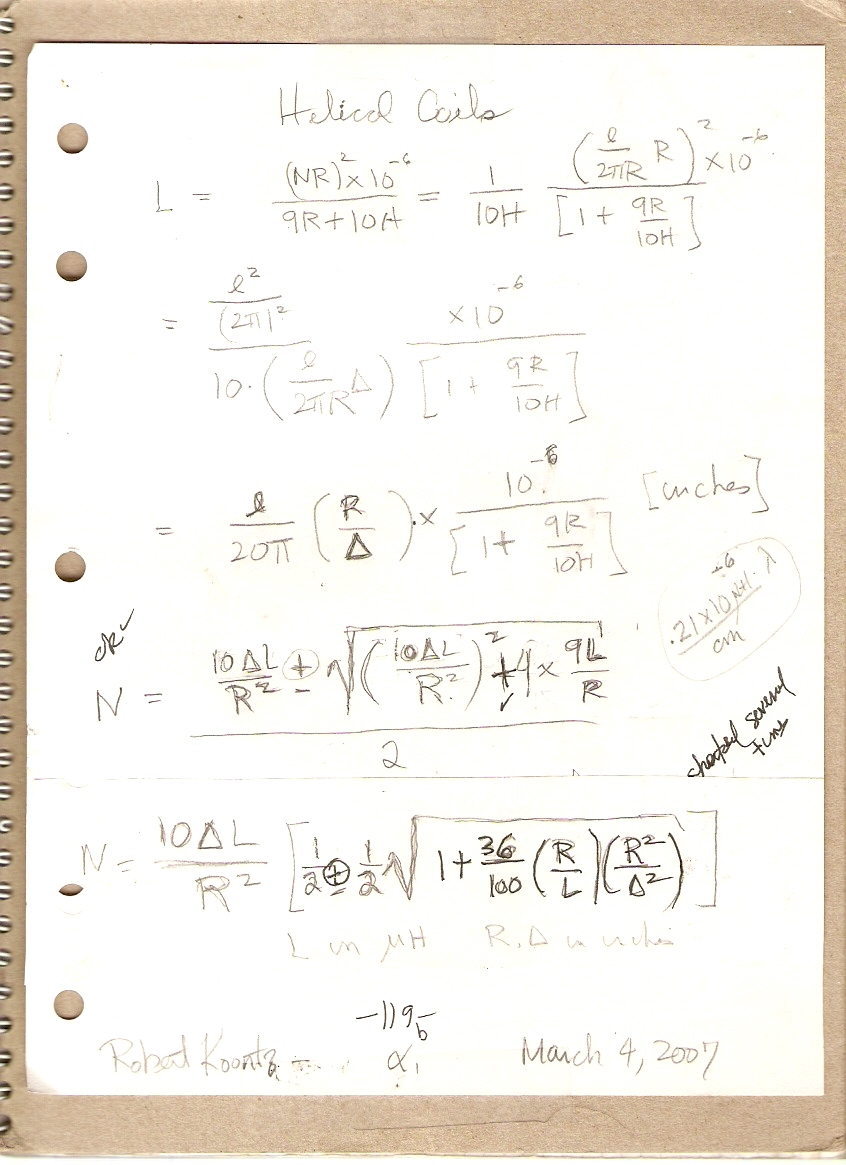 Helical Coils
L = (NR)² × 10⁻⁶ / (9R + 10H) = 1/10H (ℓ/2πR R)² × 10⁻⁶ / [1 + 9R/10H]
= ℓ²/(2π)² / 10·(ℓ/2πR Δ) × 10⁻⁶ / [1 + 9R/10H]
= ℓ/20π (R/Δ) · × 10⁻⁶ / [1 + 9R/10H] [inches]
.21 × 10⁻⁶ λ / cm
ok ✓
N = 10ΔL/R² ± √((10ΔL/R²)² + 4 × 9L/R) / 2
checked several times
N = 10ΔL/R² [1/2 ± 1/2 √(1 + 36/100 (R/L)(R²/Δ²))]
L in μH R, Δ in inches
-119b-
Robert Koontz α₁ March 4, 2007